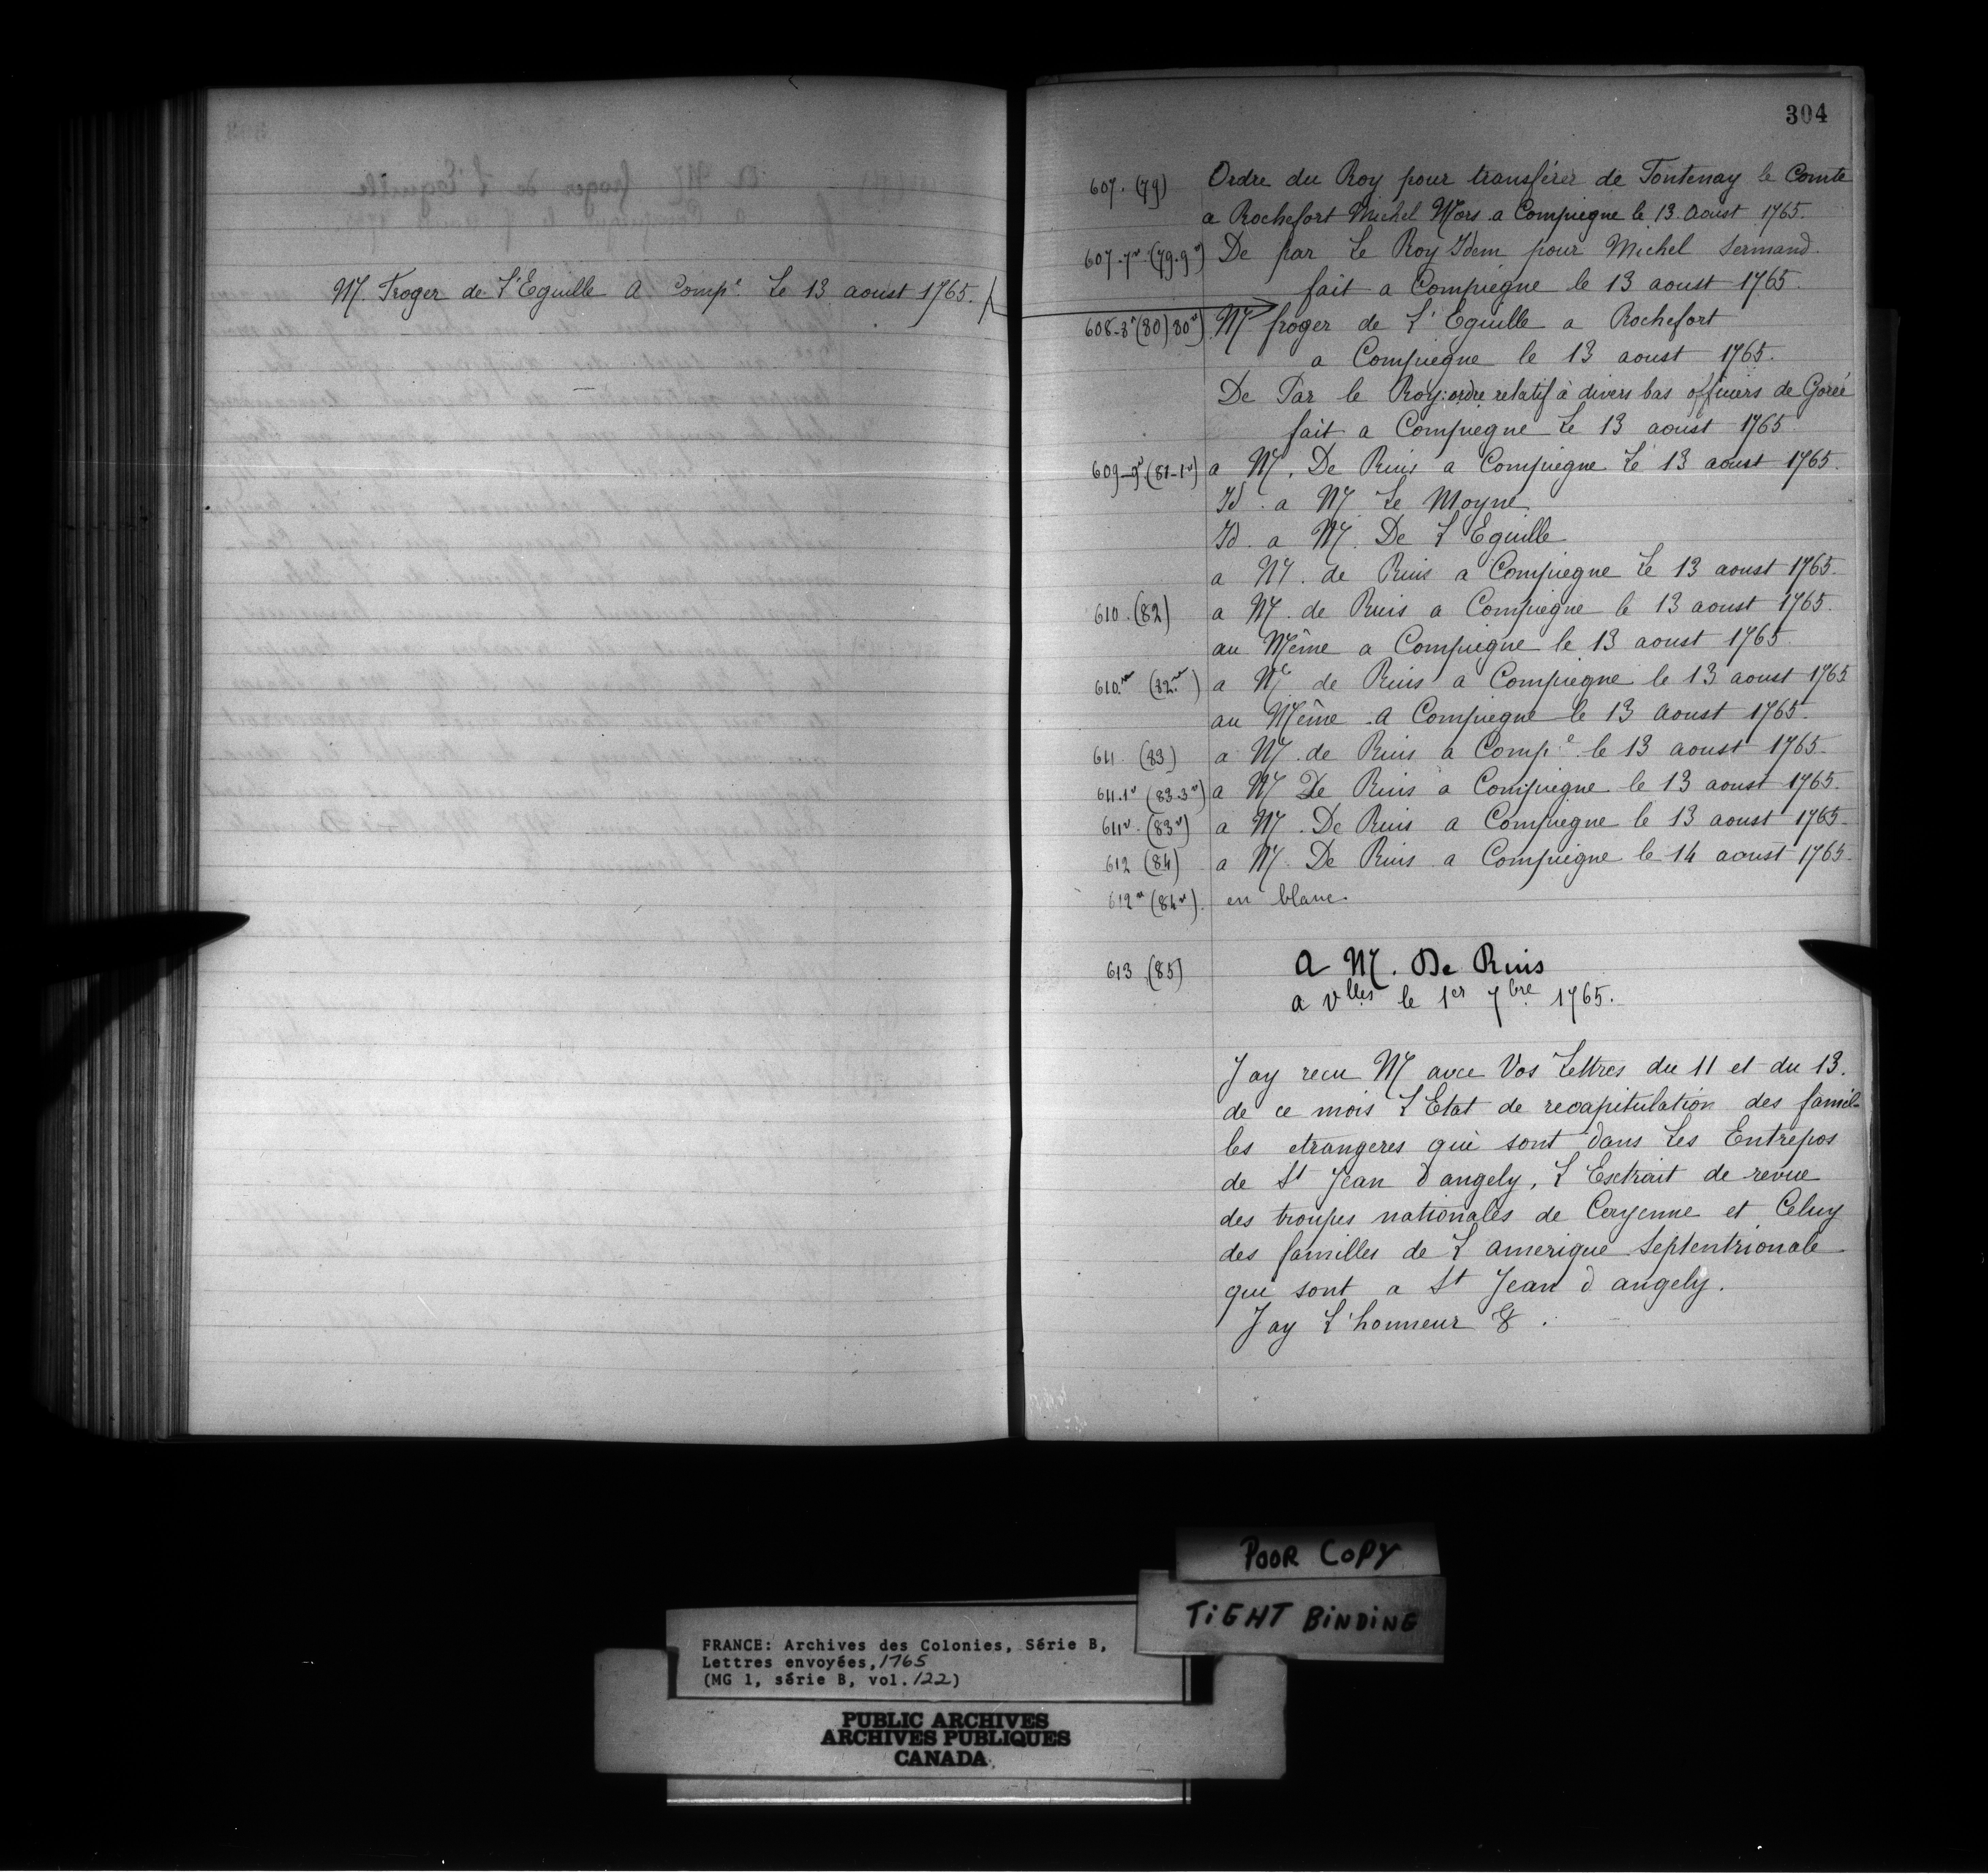 M. Froger de L'Eguille A Comp.e Le 13 aoust 1765.
304
607. (79) Ordre du Roy pour transférer de Fontenay le Comte
a Rochefort Michel Mors a Compiegne le 13 aoust 1765.
607-7v (79.9v) De par Le Roy Idem pour Michel Sermand.
fait a Compiegne le 13 aoust 1765.
608-8v (80) 80v) M froger de L'Eguille a Rochefort
a Compiegne le 13 aoust 1765.
De Par le Roy: ordre relatif à divers bas officiers de Gorée
fait a Compiegne Le 13 aoust 1765
609-9v (81-1v) a M. De Ruis a Compiegne Le 13 aoust 1765.
Id. a M. Le Moyne
Id. a M. De L'Eguille
a M. de Ruis a Compiegne Le 13 aoust 1765.
610. (82) a M. de Ruis a Compiegne le 13 aoust 1765.
au Même a Compiegne le 13 aoust 1765
610.v (82.v) a M. de Ruis a Compiegne le 13 aoust 1765
au Même. a Compiegne le 13 aoust 1765.
611. (83) a M. de Ruis a Comp.e le 13 aoust 1765.
611.1v (83.3v) a M De Ruis a Compiegne le 13 aoust 1765.
611v. (83v) a M. De Ruis a Compiegne le 13 aoust 1765.
612 (84) a M. De Ruis a Compiegne le 14 aoust 1765.
612v (84v). en blanc.
613 (85) A M. De Ruis
a vlles le 1er 7bre 1765.
Jay recu M avec Vos Lettres du 11 et du 13.
de ce mois L'Etat de recapitulation des famil-
les etrangeres qui sont dans Les Entrepos
de St Jean d angely, L'Esctrait de revue
des troupes nationales de Cayenne et Celuy
des familles de L amerique Septentrionale
qui sont a St Jean d angely.
Jay L'honneur &.
POOR COPY
TiGHT BiNDiNG
FRANCE: Archives des Colonies, Série B,
Lettres envoyées, 1765
(MG 1, série B, vol. 122)
PUBLIC ARCHIVES
ARCHIVES PUBLIQUES
CANADA